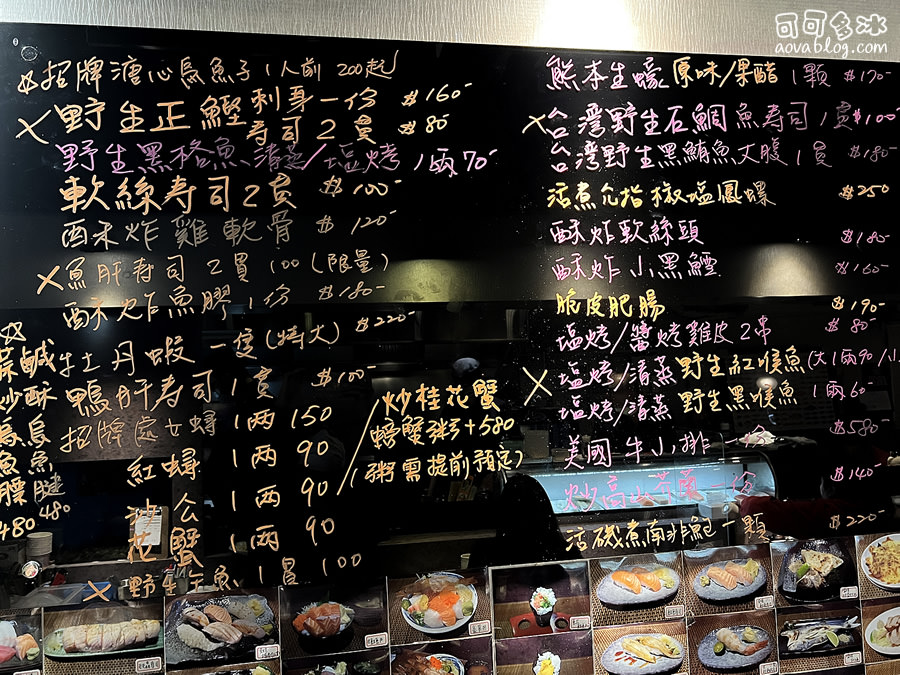 可可多冰
aovablog.com
招牌溏心烏魚子1人前 200起
野生正鰹刺身一份 $160-
壽司2貫 $80-
野生黑格魚清蒸/塩烤 1兩70-
軟絲壽司2貫 $100-
酥炸雞軟骨 $120-
魚肝壽司2貫 100(限量)
酥炸魚膘1份 $180-
牡丹蝦一隻(特大) $220-
鴨肝壽司1貫 $100-
招牌處女蟳 1两 150
紅蟳 1两 90
沙公 1两 90
花蟹 1两 90
100
蒜炒烏魚膘 480
鹹酥烏魚腱 480
炒桂花蟹
螃蟹粥+580
(粥需提前預定)
熊本生蠔原味/果醋 1顆 $170-
台灣野生石鯛魚壽司1貫$100-
台灣野生黑鮪魚大腹1貫 $180-
活煮九指椒塩鳳螺 $250
酥炸軟絲頭 $180-
酥炸小黑鱈 $160-
脆皮肥腸 $190-
塩烤/醬烤雞皮2串 $80-
塩烤/清蒸野生紅喉魚(大1兩90/小
塩烤/清蒸野生黑喉魚 1兩60-
美國牛小排一份 $580-
炒高山芥蘭一份 $140-
活磯煮南非鮑一顆 $220-